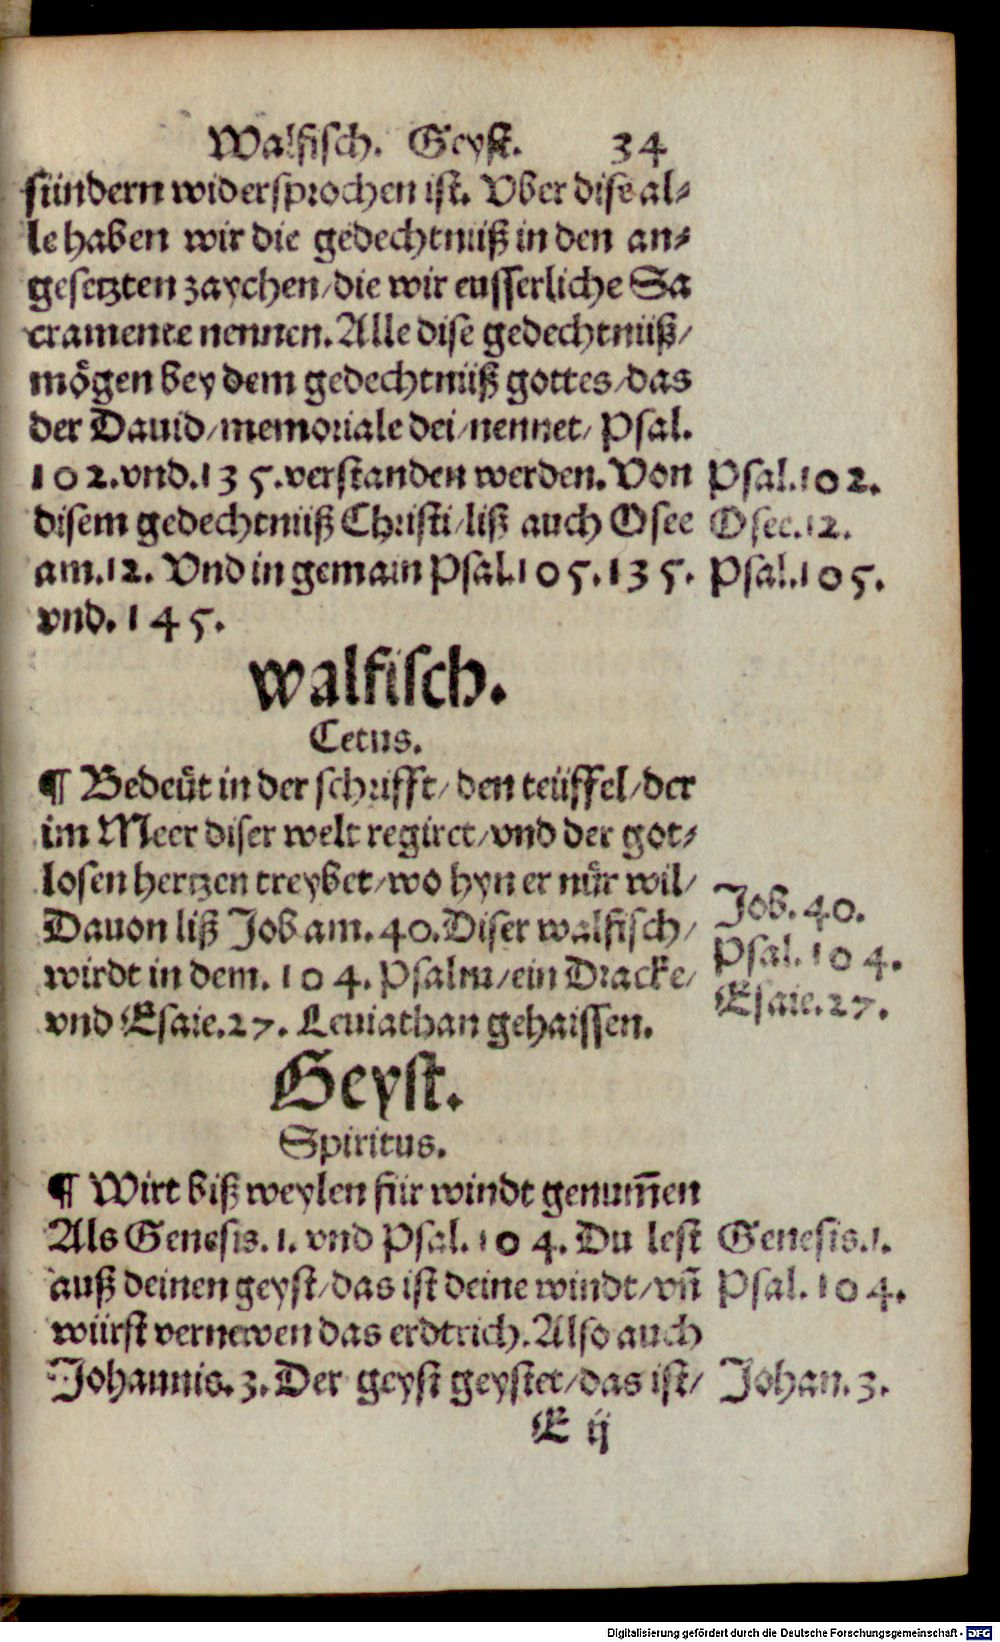 Walfisch. Geyst. 34
sündern widersprochen ist. Vber dise al⸗
le haben wir die gedechtnüß in den an⸗
gesetzten zaychen/die wir eusserliche Sa
cramente nennen. Alle dise gedechtnüß/
mögen bey dem gedechtnüß gottes/das
der Dauid/memoriale dei/nennet/ Psal.
102.vnd.135.verstanden werden. Von
disem gedechtnüß Christi/liß auch Osee
am.12. Vnd in gemain Psal.105.135.
vnd.145.
Psal.102.
Osee.12.
Psal.105.
Walfisch.
Cetus.
¶ Bedeüt in der schrifft/den teüffel/der
im Meer diser welt regiret/vnd der got⸗
losen hertzen treybet/wo hyn er nůr wil/
Dauon liß Job am.40.Diser walfisch/
wirdt in dem.104.Psalm/ein Dracke/
vnd Esaie.27. Leuiathan gehaissen.
Job.40.
Psal.104.
Esaie.27.
Geyst.
Spiritus.
¶ Wirt biß weylen für windt genum̄en
Als Genesis.1. vnd Psal.104. Du lest
auß deinen geyst/das ist deine windt/vn̄
würst vernewen das erdtrich. Also auch
Johannis.3. Der geyst geystet/das ist/
Genesis.1.
Psal.104.
Johan.3.
E ij
Digitalisierung gefördert durch die Deutsche Forschungsgemeinschaft - DFG